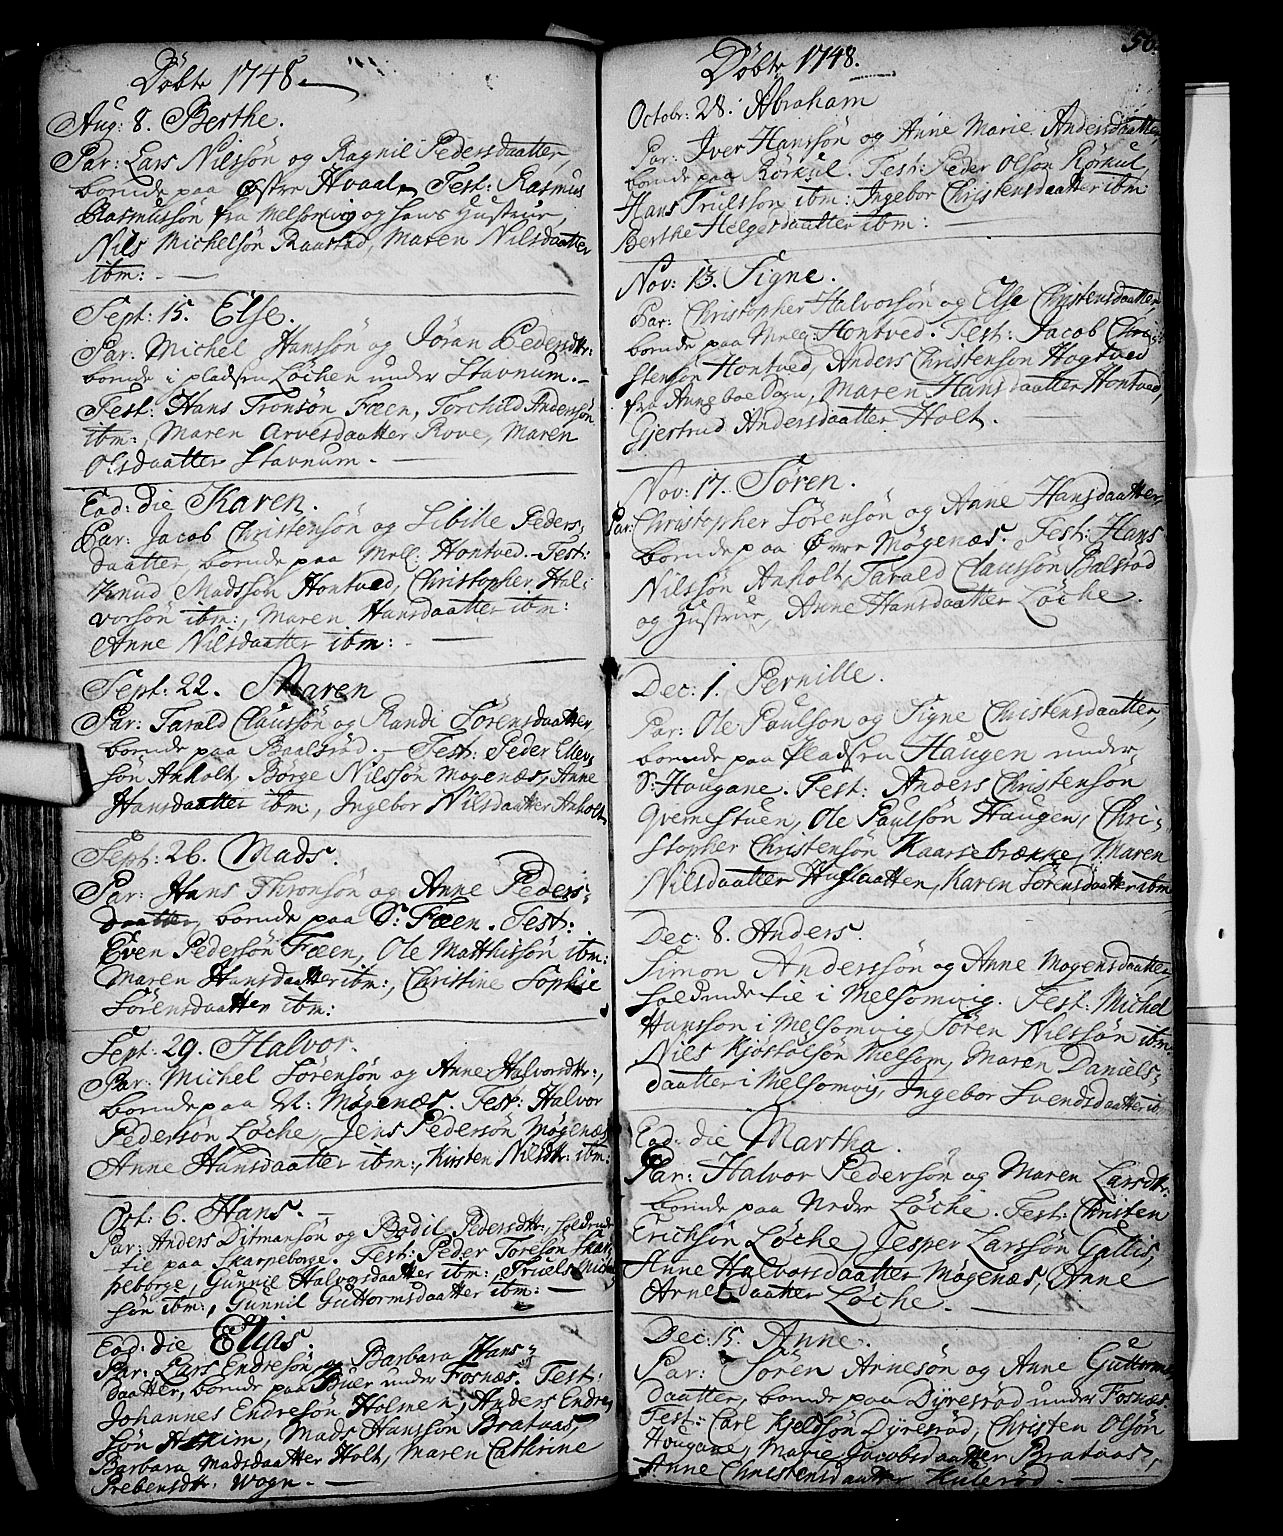 Döbte 1748.
Aug: 8. Berthe.
Par: Lars Nilssön og Ragnil Pedersdaatter,
boende paa Østre Hvaal. Test: Rasmus
Rasmussön fra Melsomvig og hans Hustrue,
Nils Michelsön Raastad, Maren Nilsdaatter
ibm:
Sept: 15. Else.
Par: Michel Hanssön og Jöran Pedersdtr:
boende i pladsen Løchen under Stavnum.
Test: Hans Tronsön Fæen, Torchild Anderssön
ibm:, Maren Arvesdaatter Rove, Maren
Olsdaatter Stavnum.
Eod: die Karen.
Par: Jacob Christensön og Libiche Peders-
daatter, boende paa Mell: Hontved. Test:
Knud Madssön Hontved, Christopher Hal-
vorsön ibm:, Maren Hansdaatter ibm:
Anne Nilsdaatter ibm:
Sept: 22. Maren
Par: Tarald Claussön og Randi Sörensdaatter,
boende paa Baalsröd. Test: Peder Ellev-
sön Anholt, Börge Nilssön Mogenæs, Anne
Hansdaatter ibm, Ingebor Nilsdaatter Anholt
Sept: 26. Mads.
Par: Hans Thronsön og Anne Peders-
daatter, boende paa S: Fæen. Test:
Even Pedersön Fæen, Ole Matthissön ibm:
Maren Hansdaatter ibm:, Christine Sophie
Sörensdaatter ibm:
Sept: 29. Halvor.
Par: Michel Sörensön og Anne Halvorsdtr:,
boende paa N: Møgenæs. Test: Halvor
Pedersön Løche, Jens Pedersön Møgenæs
Anne Hansdaatter ibm:, Kirsten Nilsdtr: ibm:
Oct: 6. Hans.
Par: Anders Ditmansön og Bodil Pedersdtr:, holdende
til paa Skarpeborge. Test: Peder Toresön Skar-
peborge, Gunnil Halvorsdaatter ibm: Truels Nils-
sön ibm:, Gunnil Guttormsdaatter ibm:
Eod: die Elias.
Par: Lars Endresön og Barbara Hans-
daatter, boende paa Buer under Fosnæs. Test:
Johannes Endresön Holmen, Anders Endre-
sön Hæsim, Mads Hanssön Brataas,
Barbara Madsdaatter Holt, Maren Cathrine
Prebensdtr: Wogn.
50.
Döbte 1748.
Octobr: 28: Abraham
Par: Iver Hanssön og Anne Marie Andersdaatter,
boende paa Rörkul. Test: Peder Olsön Rörkul,
Hans Trulssön ibm: Ingebor Christensdaatter ibm:
Berthe Helgesdaatter ibm:
Nov: 13. Signe.
Par: Christopher Halvorsön og Else Christensdaatter,
boende paa Melg: Hontved. Test: Jacob Chri-
stensön Hontved, Anders Christensön Hogtved
fra Anneboe Sogn, Maren Hansdaatter Hontved,
Gjertrud Andersdaatter Holt.
Nov: 17. Sören.
Par: Christopher Sörensön og Anne Hansdaatter
boende paa Øvre Møgenæs. Test: Hans
Nilssön Anholt, Tarald Claussön Balsröd
og Hustrue, Anne Hansdaatter Løche.
Dec: 1. Pernille.
Par: Ole Paulsön og Signe Christensdaatter,
boende paa pladsen Haugen under
S: Hougane. Test: Anders Christensön
Qvernestuen, Ole Paulsön Haugen, Chri-
stopher Christensön Kaarsebrække, Maren
Nilsdaatter Huslaatten, Karen Sörensdaatter ibm
Dec: 8. Anders.
Simon Anderssön og Anne Mogensdaatter,
holdende til i Melsomvig. Test: Michel
Hansson i Melsomvig, Sören Nilssön ibm:
Nils Kjöstolsön Melsom, Maren Daniels-
daatter i Melsomvig, Ingebor Svendsdaatter ibm
Eod: die Martha.
Par: Halvor Pedersön og Maren Larsdtr:
boende paa Nedre Løche. Test: Christen
Erichsön Løche, Jesper Larssön Gallis,
Anne Halvorsdaatter Møgenæs, Anne
Arnesdaatter Løche.
Dec: 15. Anne.
Par: Sören Arnesön og Anne Guttorms-
daatter, boende paa Dyresrod under Fosnæs.
Test: Carl Kjelssön Dyresröd, Christen Olsön
Hougane, Marie Jacobsdaatter Brataas,
Anne Christensdaatter Huleröd.